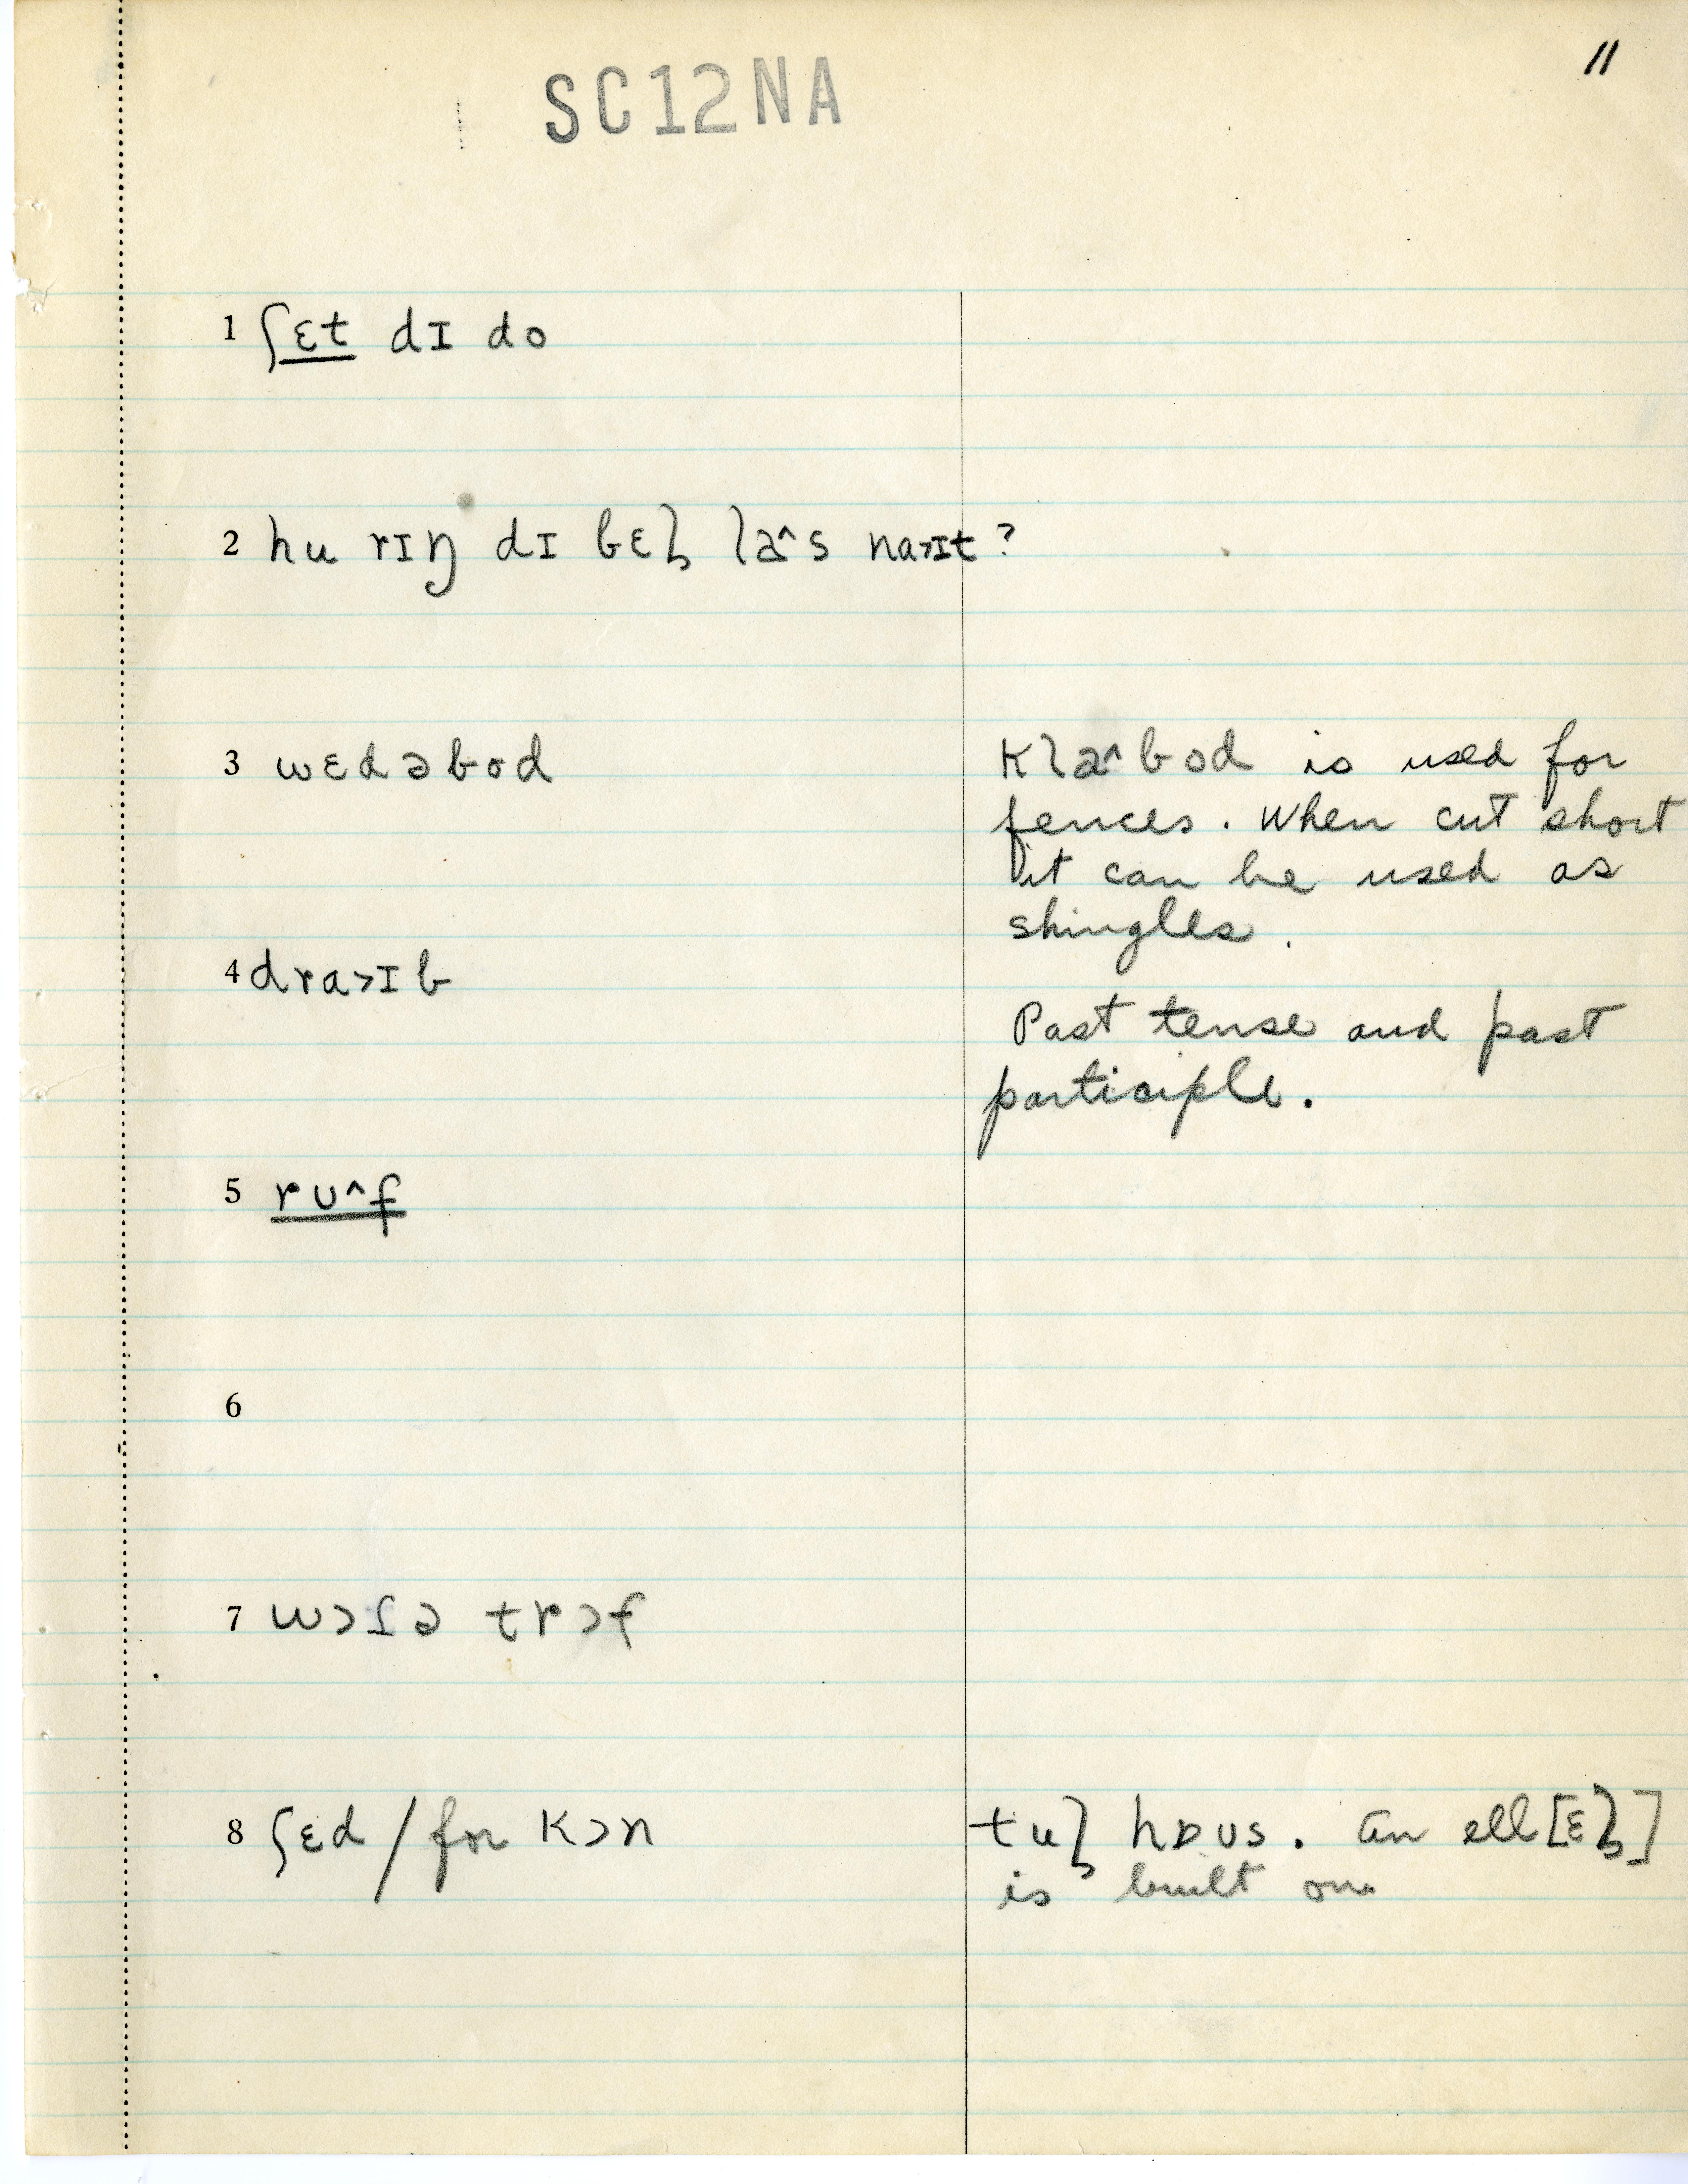 11
SC12NA
1 ʃɛt dɪ do
2 hu rɪŋ dɪ bɛɫ la^s na>ɪt?
3 wɛdəbod
Kla^bod is used for
fences. When cut short
it can be used as
shingles.
4 dra>ɪb
Past tense and past
participle.
5 rʊ^f
6
7 wɔʃə trɔf
8 ʃɛd / for Kɔn
tuɫ hɒʊs. An ell [ɛɫ]
is built on.